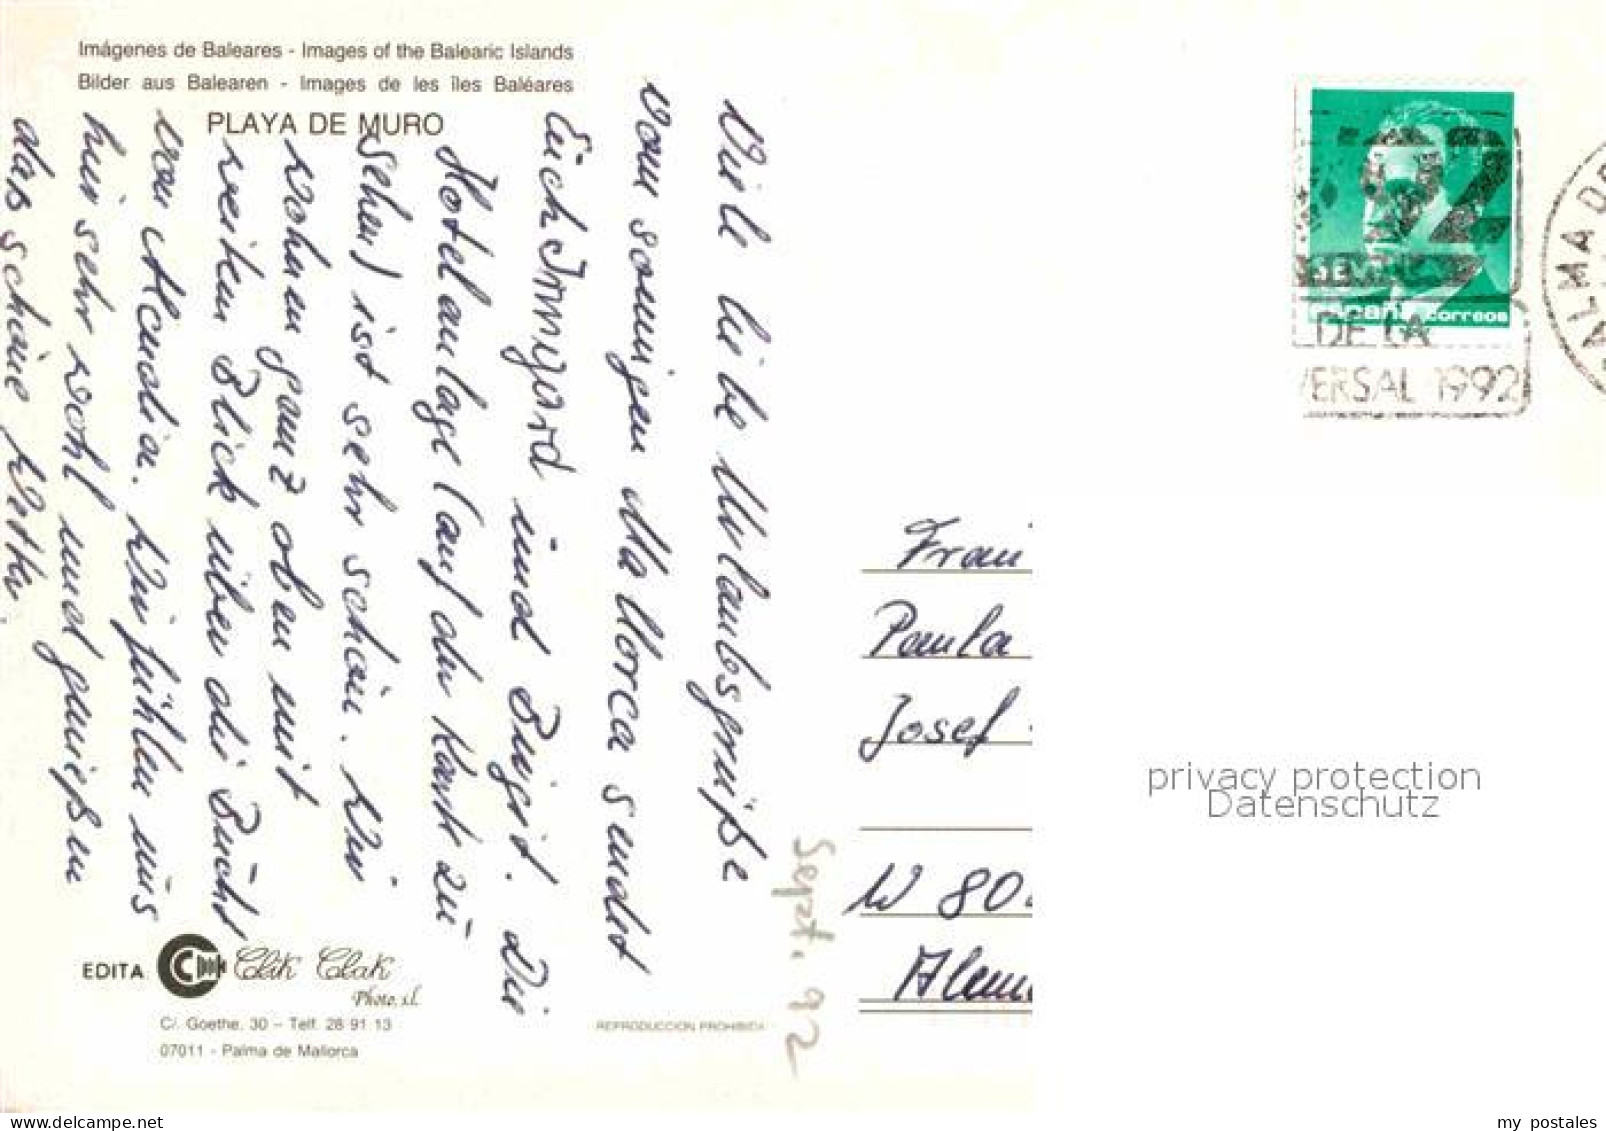 Imágenes de Baleares - Images of the Balearic Islands
Bilder aus Balearen - Images de les îles Baléares
PLAYA DE MURO
Viele liebe Urlaubsgrüße
vom sonnigen Mallorca sendet
Euch Irmgard und Birgit. Die
Hotelanlage (auf der Karte zu
sehen) ist sehr schön. Wir
wohnen ganz oben mit
weitem Blick über die Bucht
von Alcudia. Wir fühlen uns
hier sehr wohl und genießen
das schöne Wetter.
Sept. 92
EDITA Clik Clak
Photo, s.l.
C/. Goethe, 30 - Telf. 28 91 13
07011 - Palma de Mallorca
REPRODUCCION PROHIBIDA
92
DE LA
VERSAL 1992
España correos
PALMA DE
Frau
Paula
Josef
W 80
Alem
privacy protection
Datenschutz
my postales